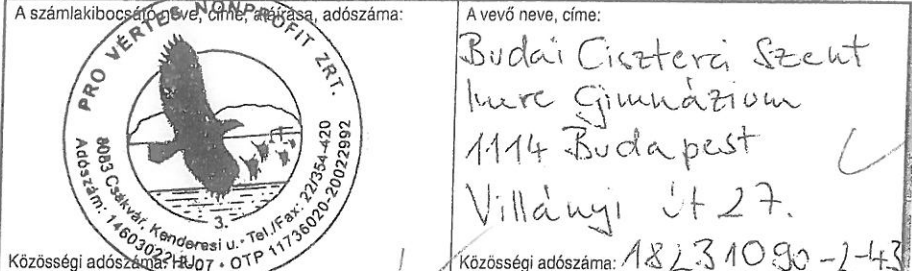 A számlakibocsátó neve, címe, aláírása, adószáma:
PRO VÉRTES NONPROFIT ZRT.
8083 Csákvár, Kenderesi u. • Tel./Fax: 22/354-420
Adószám: 14603022 07 • OTP 11736020-20022992
3.
Közösségi adószáma: HU
A vevő neve, címe:
Budai Ciszterci Szent
Imre Gimnázium
1114 Budapest
Villányi út 27.
Közösségi adószáma: 18231090-2-43